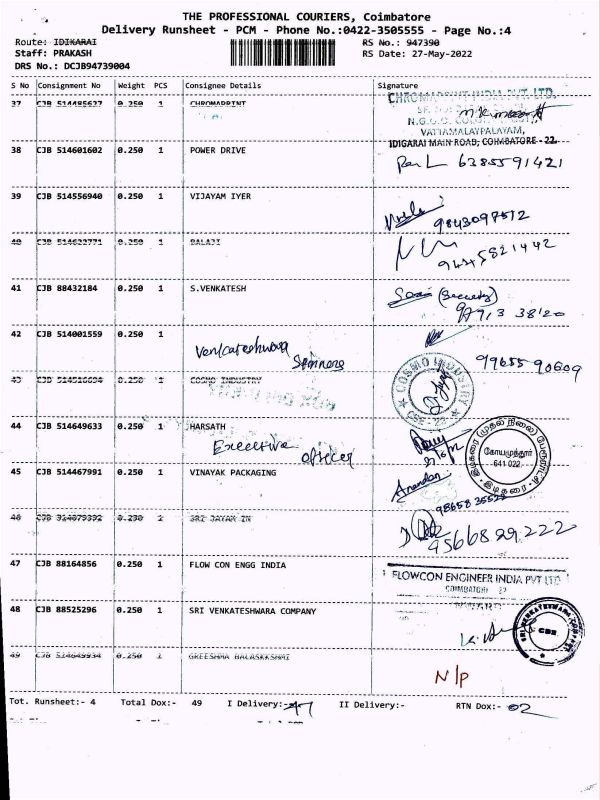 THE PROFESSIONAL COURIERS, Coimbatore
Delivery Runsheet - PCM - Phone No.:0422-3505555 - Page No.:4
Route: IDIKARAI
RS No.: 947390
Staff: PRAKASH
RS Date: 27-May-2022
DRS No.: DCJB94739004
S No Consignment No Weight PCS Consignee Details Signature
37 CJB 514485627 0.250 1 CHROMAPRINT
CHROMAPRINT INDIA PVT. LTD.
VATTAMALAYPALAYAM,
IDIGARAI MAIN ROAD, COIMBATORE - 22.
38 CJB 514601602 0.250 1 POWER DRIVE
6385591421
39 CJB 514556940 0.250 1 VIJAYAM IYER
9843097512
40 CJB 514622771 0.250 1 BALAJI
9445821442
41 CJB 88432184 0.250 1 S.VENKATESH
(Security)
42 CJB 514001559 0.250 1
Venkateshwara
Spinners
99655 90609
43 0.250 1 COSMO INDUSTRY
COSMO INDUSTRY
CBE - 22
44 CJB 514649633 0.250 1 HARSATH
Executive officer
கோயமுத்தூர்
641 022
45 CJB 514467991 0.250 1 VINAYAK PACKAGING
Anandan
46 0.250 1 SRI JAYAM IN
9566829222
47 CJB 88164856 0.250 1 FLOW CON ENGG INDIA
FLOWCON ENGINEER INDIA PVT LTD
COIMBATORE 22
48 CJB 88525296 0.250 1 SRI VENKATESHWARA COMPANY
SRI VENKATESHWARA COMPANY
CBE
49 0.250 1 GREESHMA BALASKKSHMI
N/P
Tot. Runsheet:- 4 Total Dox:- 49 I Delivery:- 47 II Delivery:- RTN Dox:- 02